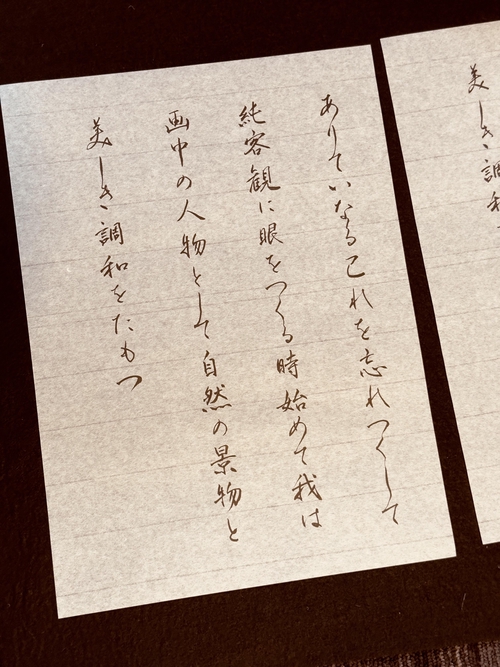 美しき調和
ありていなる己れを忘れつくして
純客観に眼をつくる時始めて我は
画中の人物として自然の景物と
美しき調和をたもつ